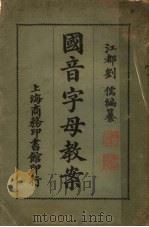 江都劉儒編纂
國音字母教案
上海商務印書館印行